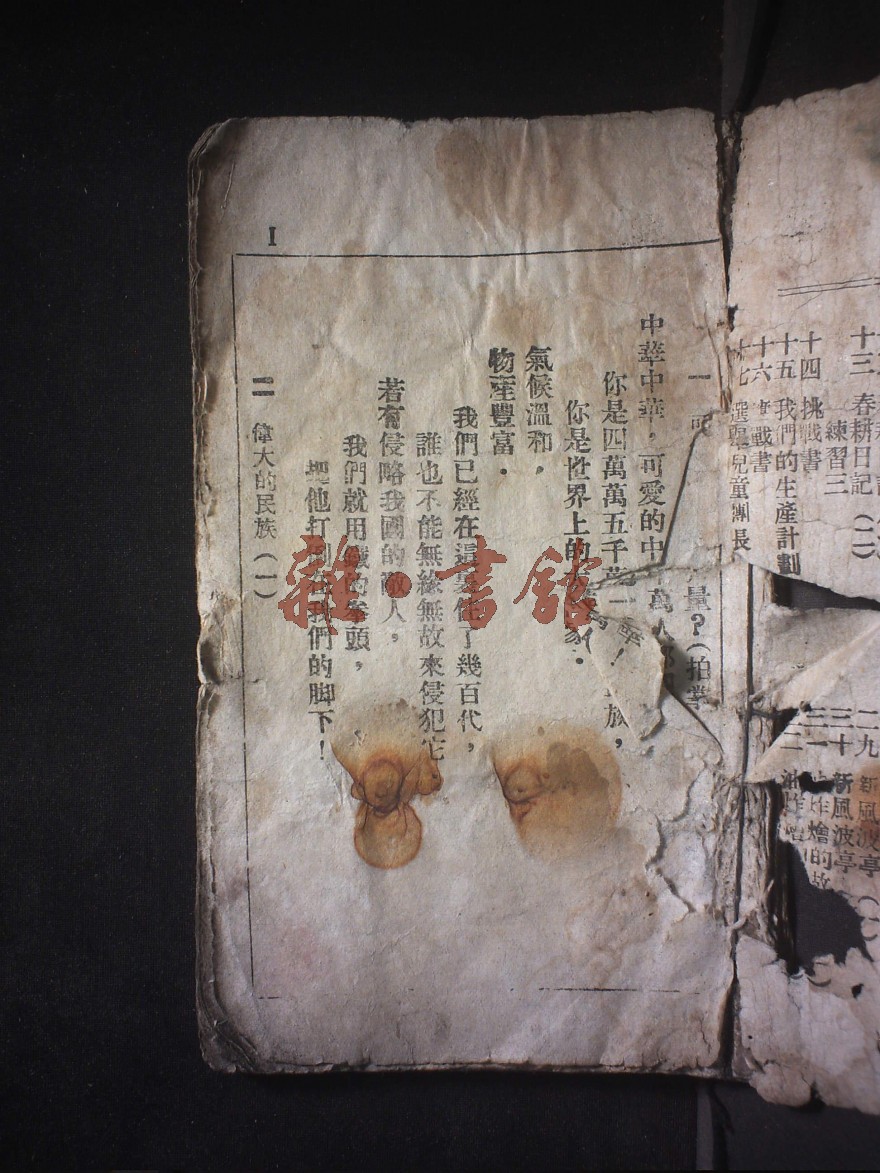 十三 春耕日記(二)
練習三
十四 挑戰書
十五 我們的生產計劃
十六 戰書
十七 選舉兒童團長
二九 新風波亭
三十 新風波亭
三一 炸燴的故
二 油炸燴
量?(拍掌
一 可
萬人
中華中華,可愛的中
華!
你是四萬萬五千萬
族,
你是世界上的
家.
氣候溫和,
物產豐富.
我們已經在這裏住了幾百代,
誰也不能無緣無故來侵犯它
若有侵略我國的敵人,
我們就用鐵的拳頭,
把他打倒在我們的脚下!
二 偉大的民族(一)
1
雜·書館